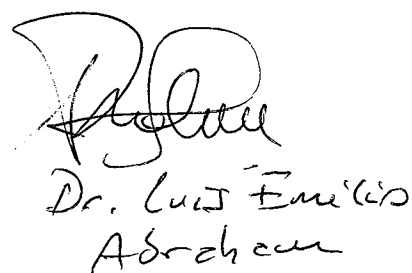 Dr. Luis Emilio
Abraham